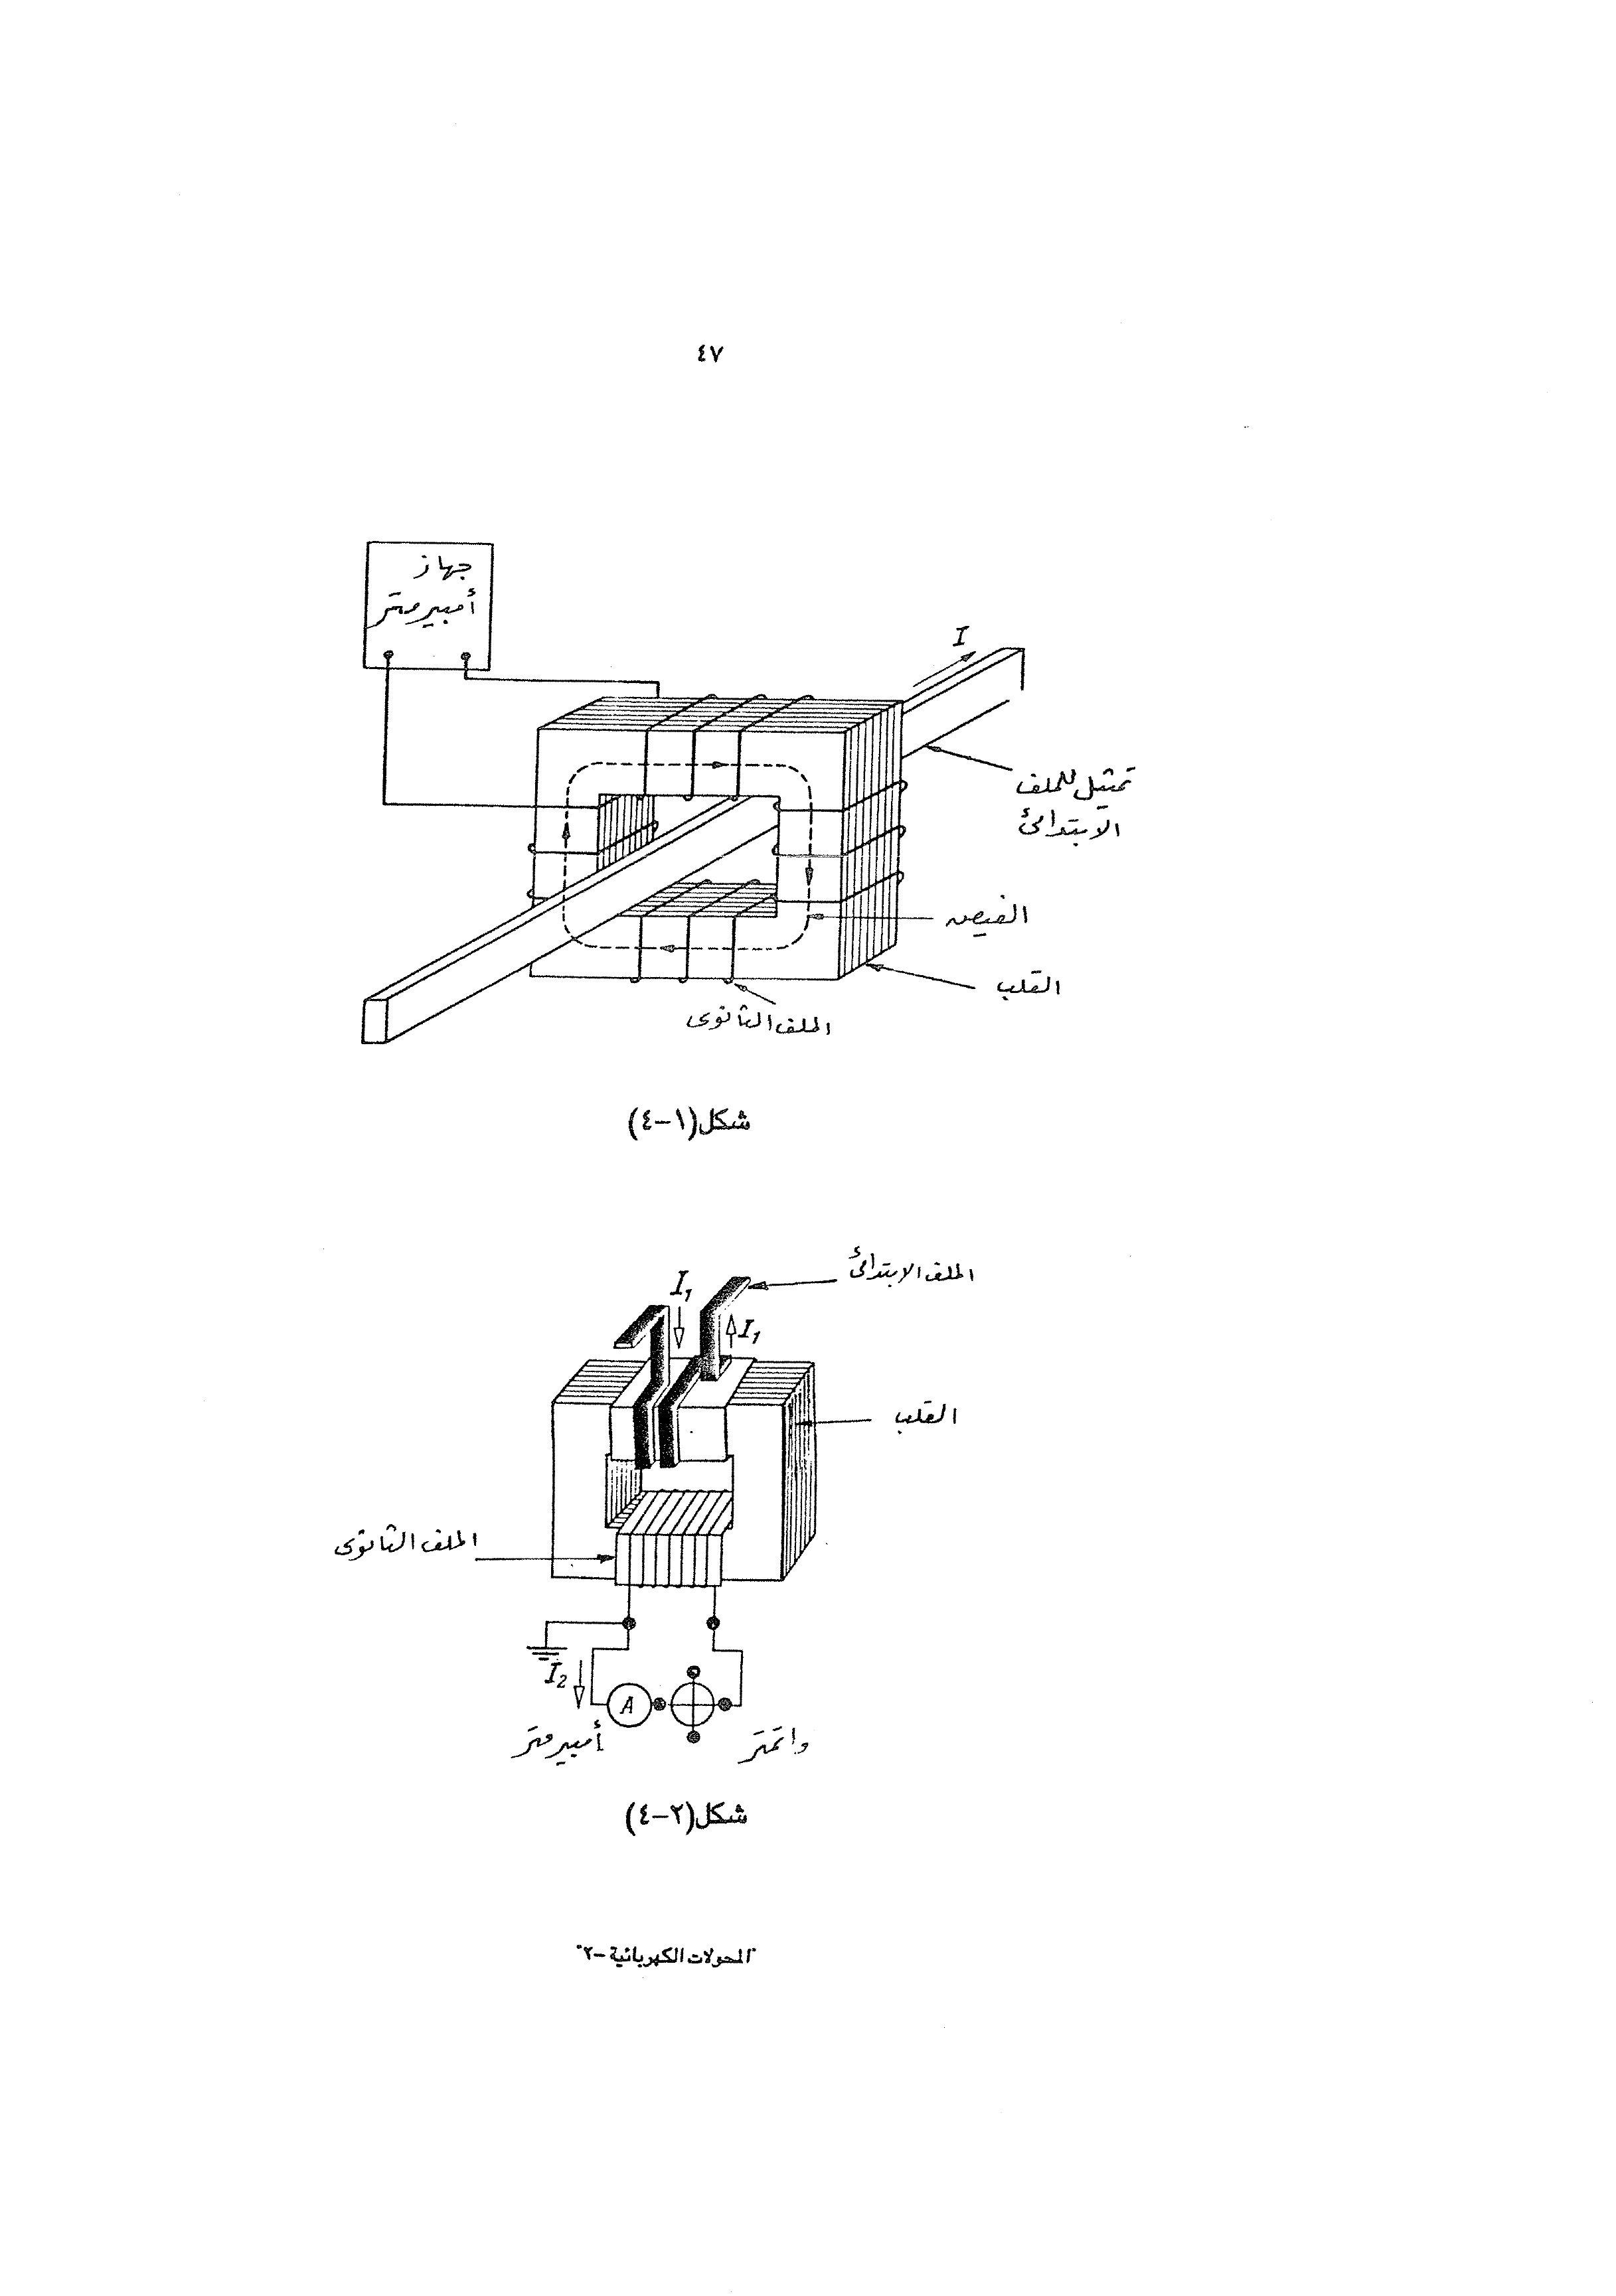 ٤٧
جهاز
أمبير متر
I
تمثيل للملف
الابتدائى
الفيض
القلب
الملف الثانوى
شكل(١-٤)
الملف الابتدائى
I₁
I₁
القلب
الملف الثانوى
I₂
A
أمبير متر
واتمتر
شكل(٢-٤)
"المحولات الكهربائية -٢"